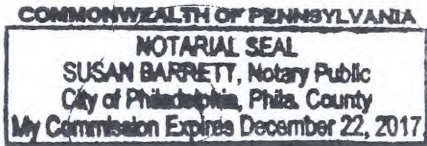 COMMONWEALTH OF PENNSYLVANIA
NOTARIAL SEAL
SUSAN BARRETT, Notary Public
City of Philadelphia, Phila. County
My Commission Expires December 22, 2017